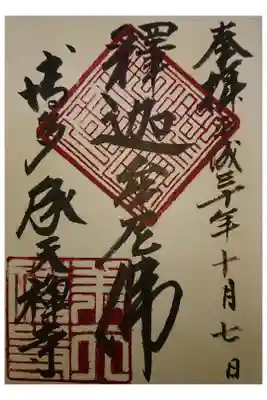 奉拝 平成三十年十月七日
釋迦牟尼佛
博多 承天禪寺